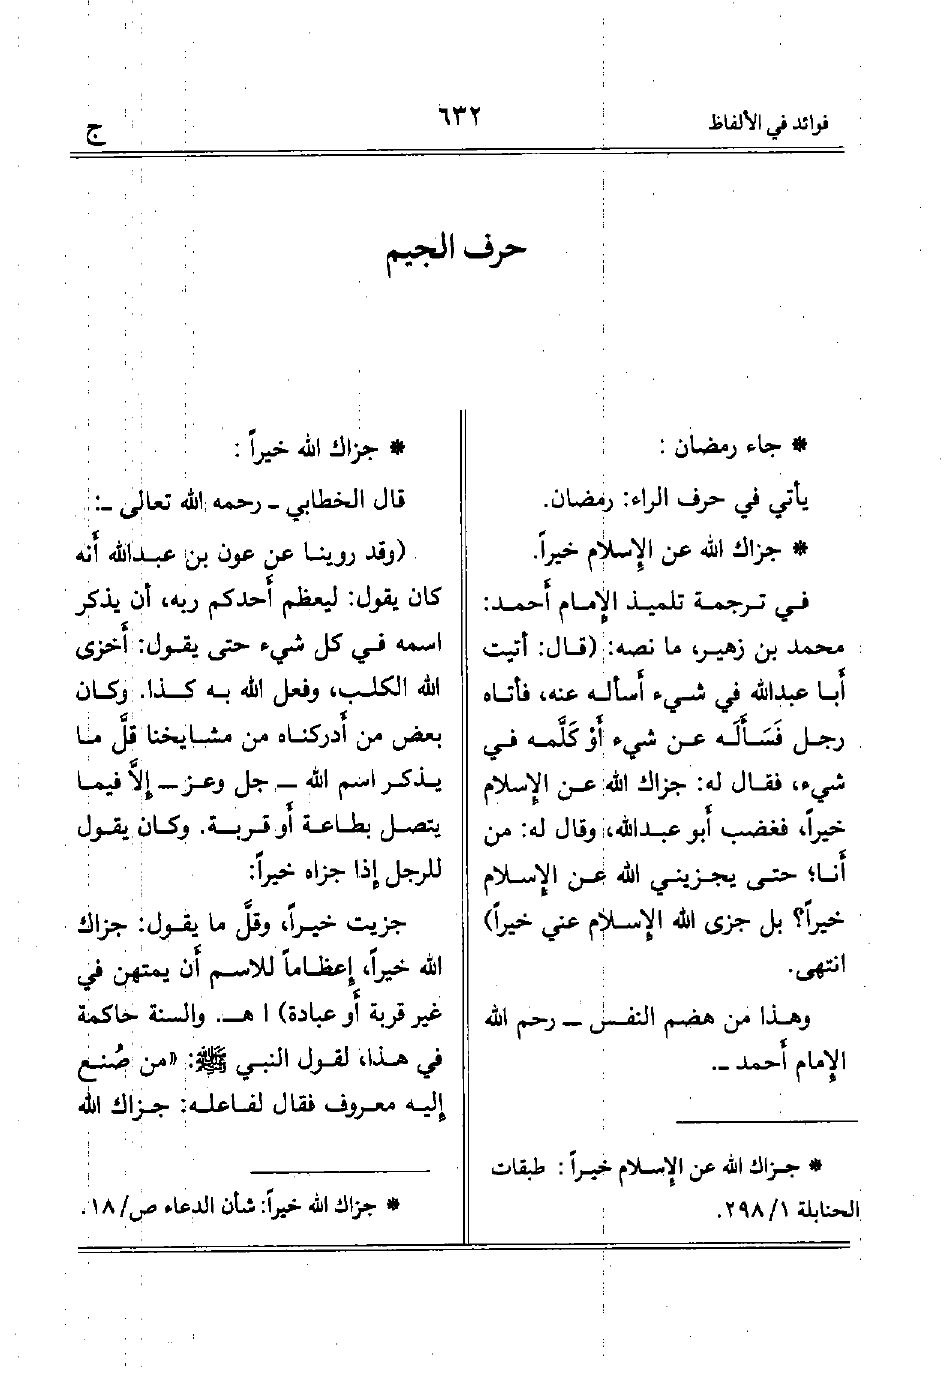 فوائد في الألفاظ
٦٣٢
ج
حرف الجيم
* جاء رمضان :
يأتي في حرف الراء: رمضان.
* جزاك الله عن الإسلام خيراً.
في ترجمة تلميذ الإمام أحمد:
محمد بن زهير، ما نصه: (قال: أتيت
أبا عبدالله في شيء أسأله عنه، فأتاه
رجل فَسَأَلَه عن شيء أوْ كَلَّمه في
شيء، فقال له: جزاك الله عن الإسلام
خيراً، فغضب أبو عبدالله، وقال له: من
أنا؛ حتى يجزيني الله عن الإسلام
خيراً؟ بل جزى الله الإسلام عني خيراً)
انتهى.
وهذا من هضم النفس ــ رحم الله
الإمام أحمد ــ.
* جزاك الله عن الإسلام خيراً : طبقات
الحنابلة ١/ ٢٩٨.
* جزاك الله خيراً :
قال الخطابي ــ رحمه الله تعالى ــ:
(وقد روينا عن عون بن عبدالله أنه
كان يقول: ليعظم أحدكم ربه، أن يذكر
اسمه في كل شيء حتى يقول: أخزى
الله الكلب، وفعل الله به كذا. وكان
بعض من أدركناه من مشايخنا قلَّ ما
يذكر اسم الله ــ جل وعز ــ إلَّا فيما
يتصل بطاعة أو قربة. وكان يقول
للرجل إذا جزاه خيراً:
جزيت خيراً، وقلَّ ما يقول: جزاك
الله خيراً، إعظاماً للاسم أن يمتهن في
غير قربة أو عبادة) ا هـ. والسنة حاكمة
في هذا، لقول النبي ﷺ: «من صُنع
إليه معروف فقال لفاعله: جزاك الله
* جزاك الله خيراً: شأن الدعاء ص/ ١٨.